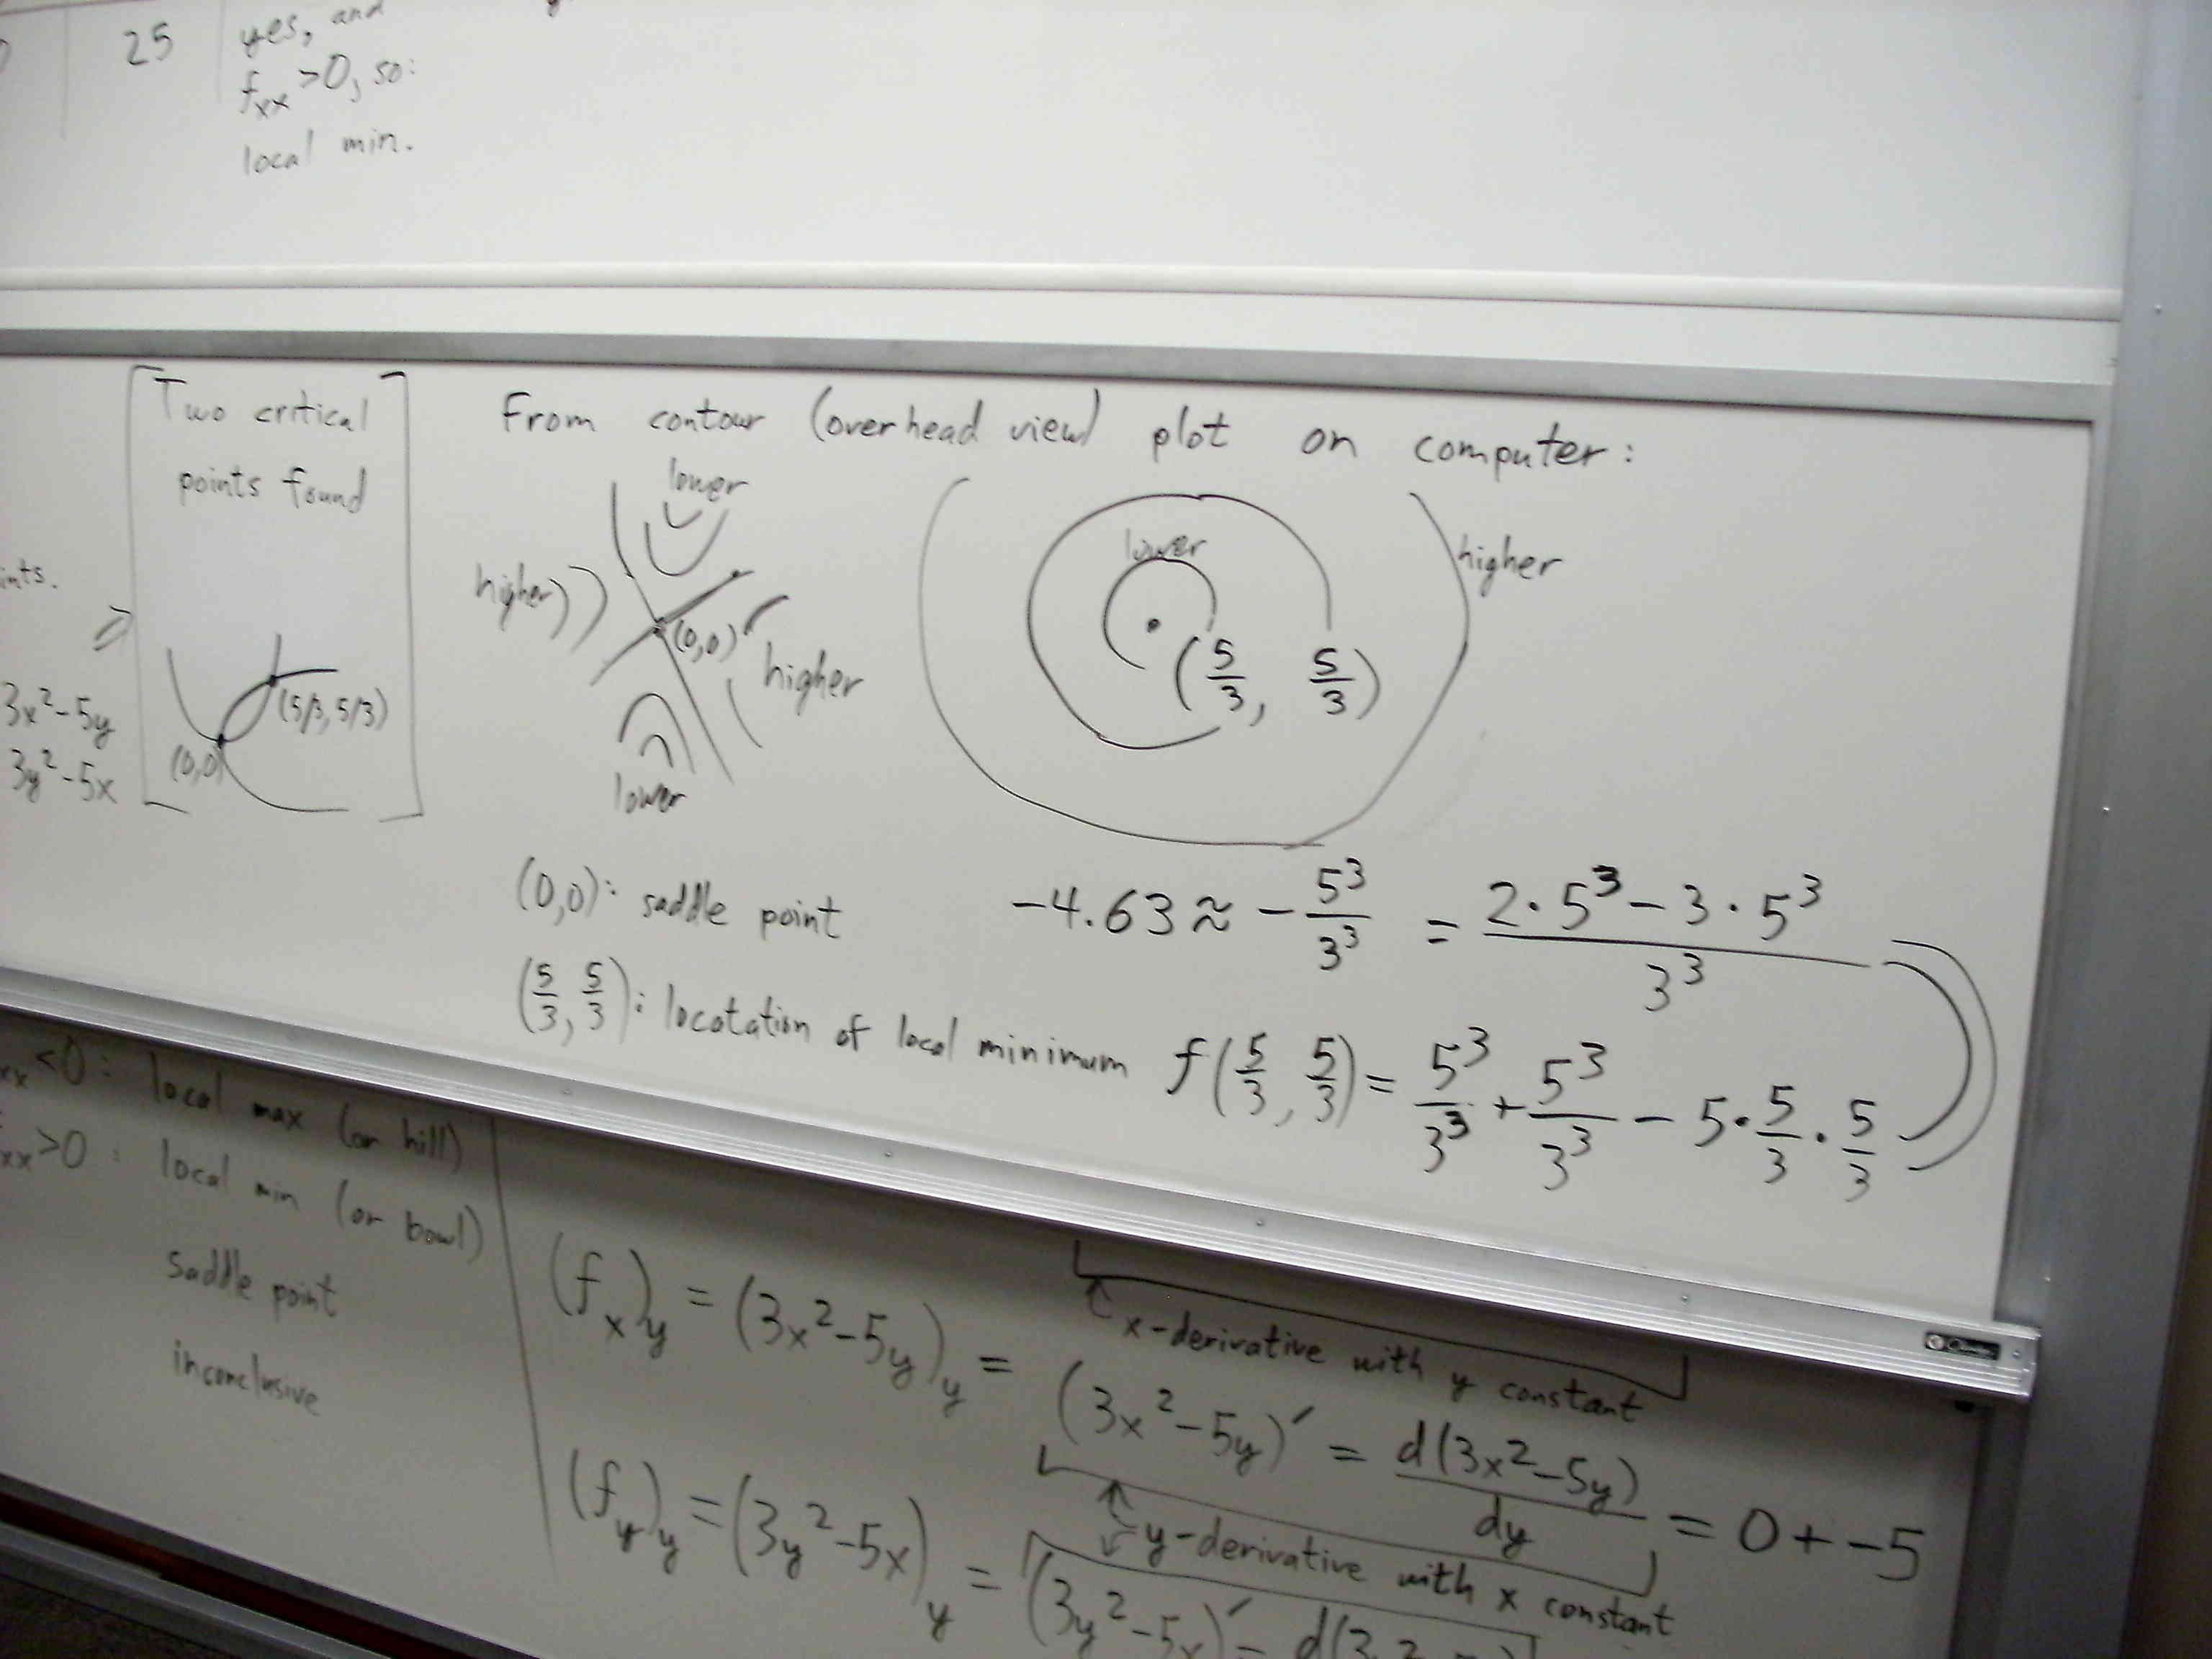 25
yes, and
fxx >0, so:
local min.
Two critical
points found
(5/3, 5/3)
(0,0)
ints.
⇒
3x²-5y
3y²-5x
From contour (overhead view) plot on computer:
lower
higher
(0,0)
higher
lower
lower
higher
(5/3, 5/3)
(0,0): saddle point
-4.63 ≈ -5³/3³ = (2·5³-3·5³)/3³
(5/3, 5/3): locatation of local minimum f(5/3, 5/3) = 5³/3³ + 5³/3³ - 5·5/3·5/3
xx <0: local max (or hill)
xx >0: local min (or bowl)
saddle point
inconclusive
x-derivative with y constant
(fx)y = (3x²-5y)y = (3x²-5y)′ = d(3x²-5y)/dy = 0+-5
y-derivative with x constant
(fy)y = (3y²-5x)y = (3y²-5x)′ =